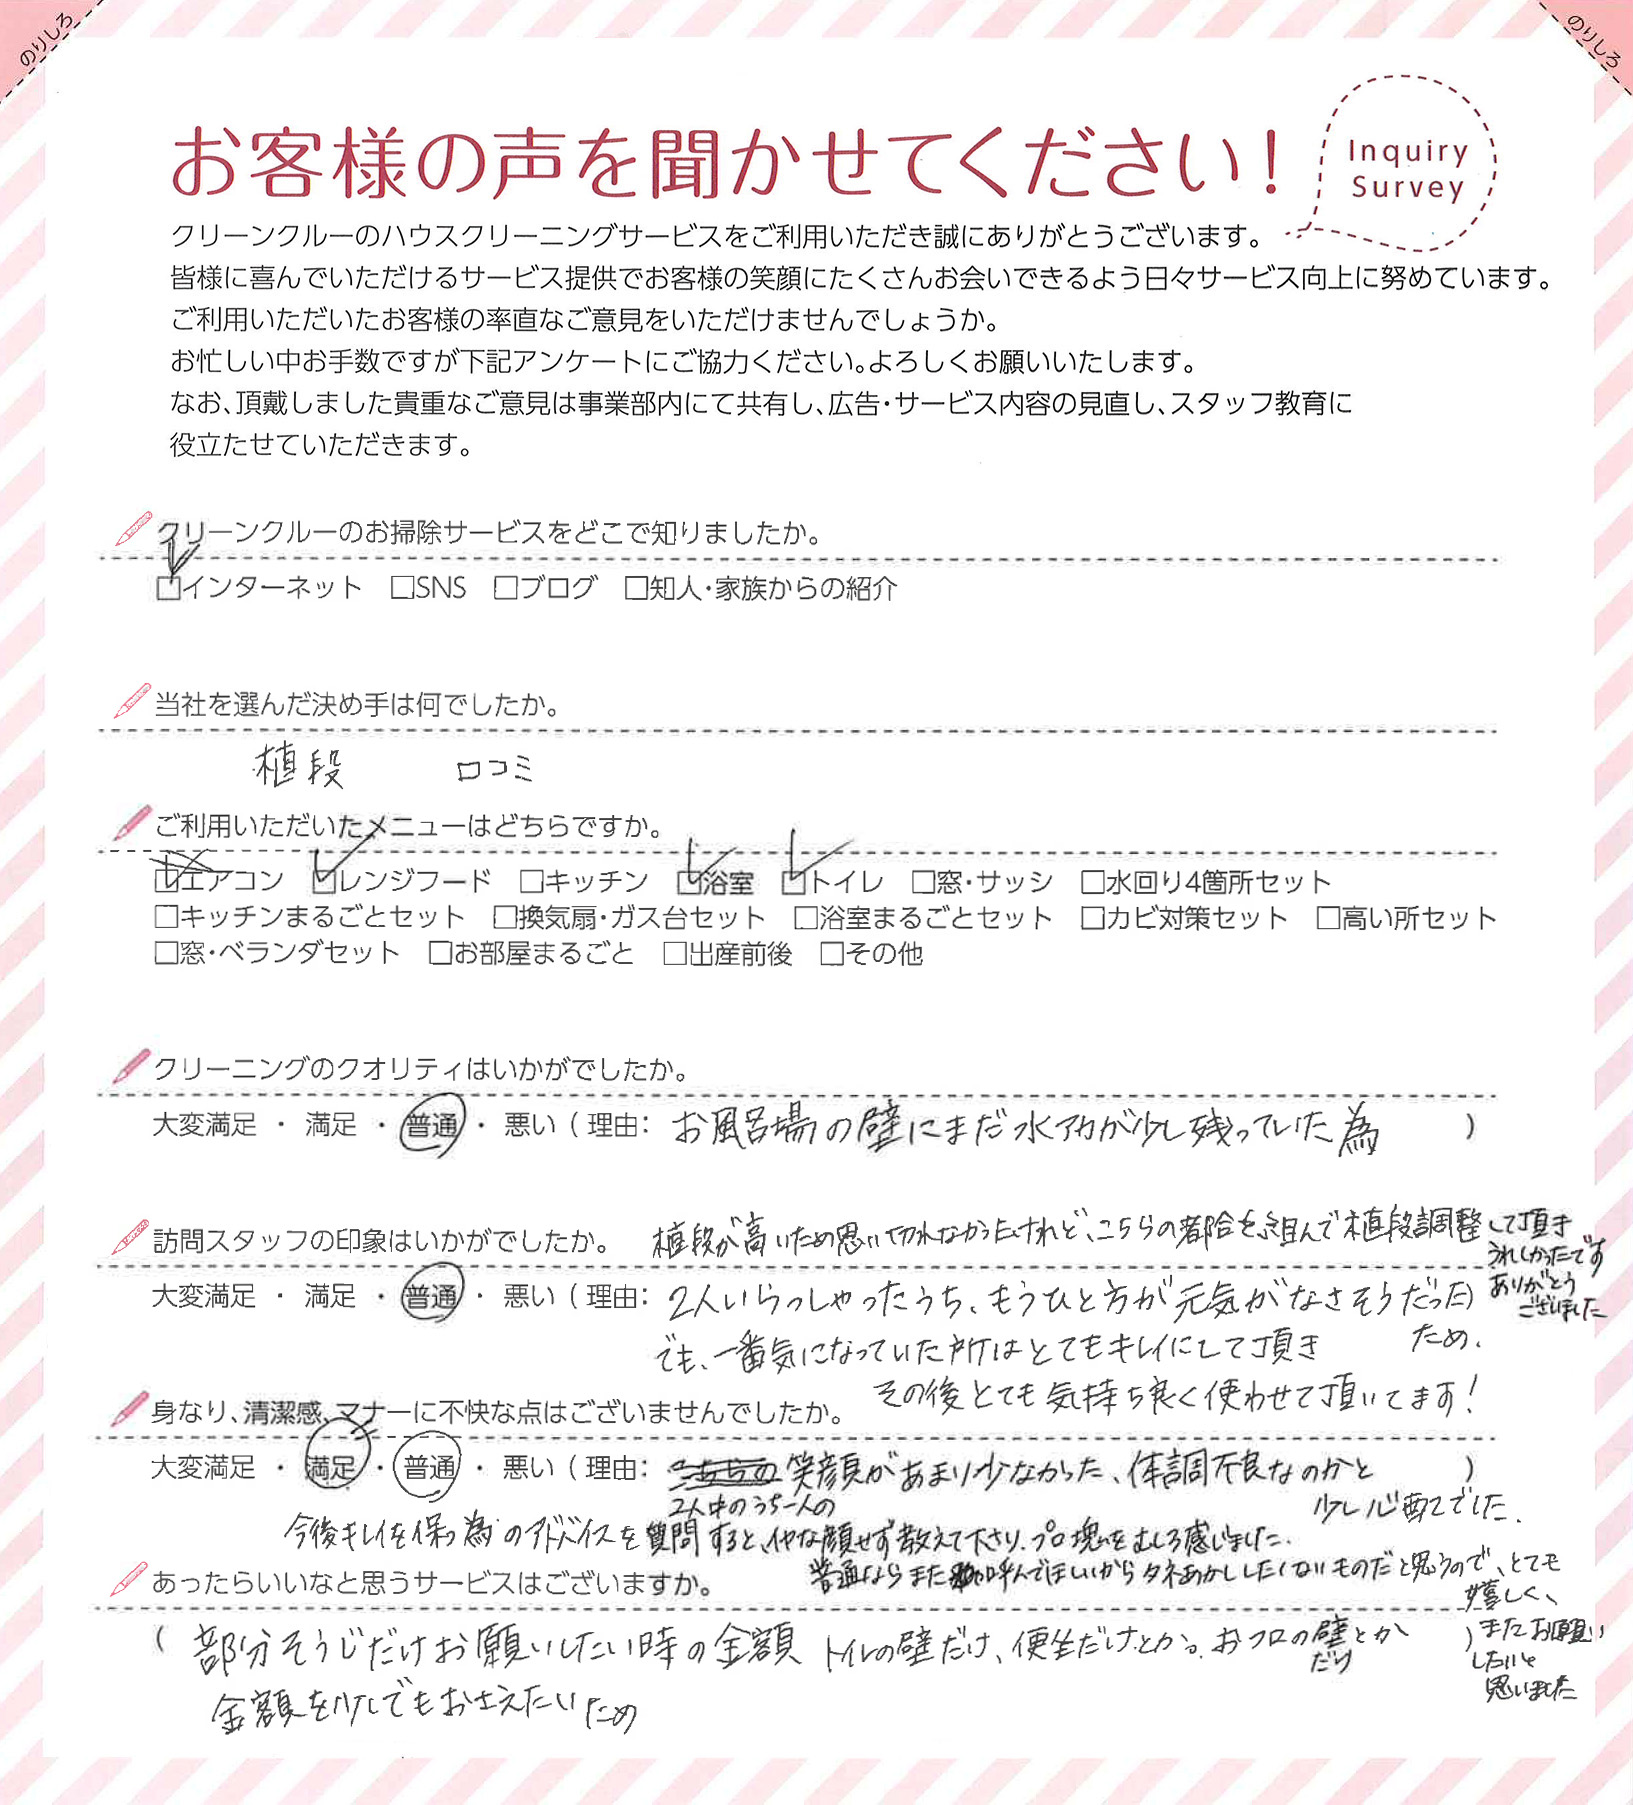 のりしろ
のりしろ
お客様の声を聞かせてください!
Inquiry
Survey
クリーンクルーのハウスクリーニングサービスをご利用いただき誠にありがとうございます。
皆様に喜んでいただけるサービス提供でお客様の笑顔にたくさんお会いできるよう日々サービス向上に努めています。
ご利用いただいたお客様の率直なご意見をいただけませんでしょうか。
お忙しい中お手数ですが下記アンケートにご協力ください。よろしくお願いいたします。
なお、頂戴しました貴重なご意見は事業部内にて共有し、広告・サービス内容の見直し、スタッフ教育に
役立たせていただきます。
クリーンクルーのお掃除サービスをどこで知りましたか。
☑インターネット □SNS □ブログ □知人・家族からの紹介
当社を選んだ決め手は何でしたか。
値段 口コミ
ご利用いただいたメニューはどちらですか。
□エアコン ☑レンジフード □キッチン ☑浴室 ☑トイレ □窓・サッシ □水回り4箇所セット
□キッチンまるごとセット □換気扇・ガス台セット □浴室まるごとセット □カビ対策セット □高い所セット
□窓・ベランダセット □お部屋まるごと □出産前後 □その他
クリーニングのクオリティはいかがでしたか。
大変満足 ・ 満足 ・ 普通 ・ 悪い ( 理由: お風呂場の壁にまだ水アカが少し残っていた為 )
訪問スタッフの印象はいかがでしたか。 値段が高いため思い切れなかったけれど、こちらの都合を組んで値段調整して頂き
うれしかったです
ありがとう
ございました
大変満足 ・ 満足 ・ 普通 ・ 悪い ( 理由: 2人いらっしゃったうち、もうひと方が元気がなさそうだった)
ため.
でも、一番気になっていた所はとてもキレイにして頂き
その後とても気持ち良く使わせて頂いてます!
身なり、清潔感、マナーに不快な点はございませんでしたか。
大変満足 ・ 満足 ・ 普通 ・ 悪い ( 理由: 笑顔があまり少なかった、体調不良なのかと )
2人中のうち一人の
少し心配でした.
今後キレイを保つ為のアドバイスを質問すると、イヤな顔せず教えて下さり、プロ魂をむしろ感じました.
普通ならまた呼んでほしいからタネあかししたくないものだと思うので、とても
嬉しく、
またお願い
したいと
思いました
あったらいいなと思うサービスはございますか。
( 部分そうじだけお願いしたい時の金額 トイレの壁だけ、便座だけとか。おフロの壁とか )
だけ
金額を少しでもおさえたいため